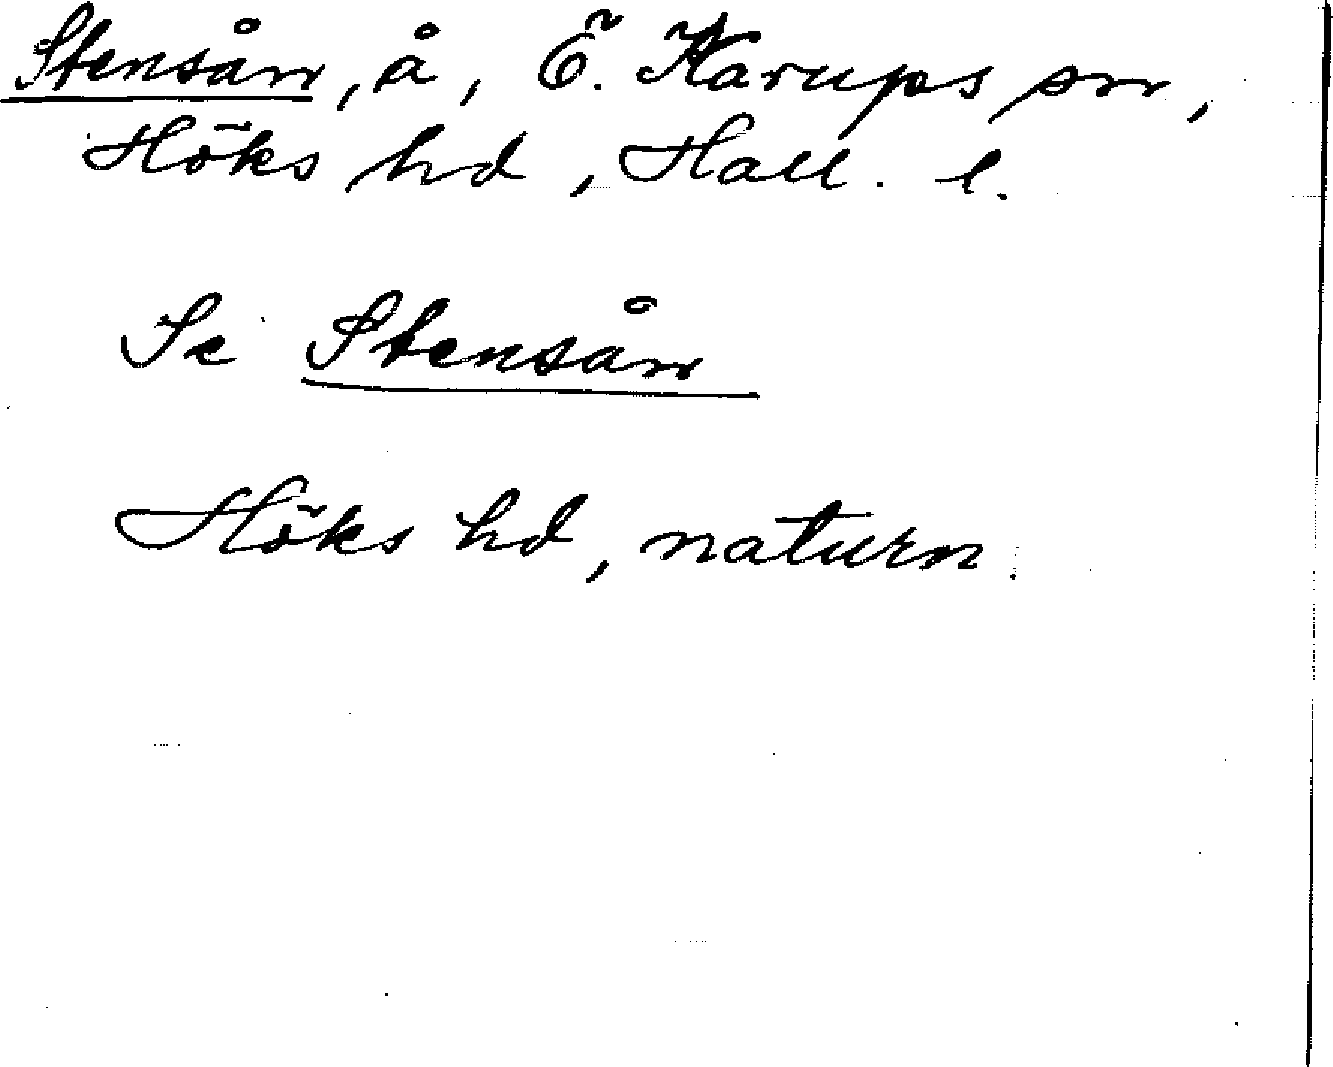 Stensån, å, Ö. Karups sn,
Höks hd, Hall. l.
Se Stensån
Höks hd, naturn.